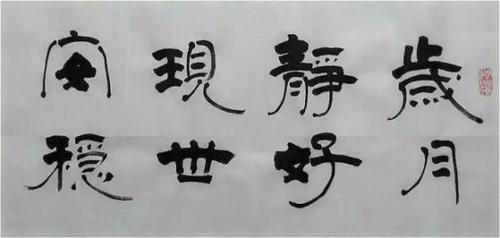 歲月
靜好
現世
安穩